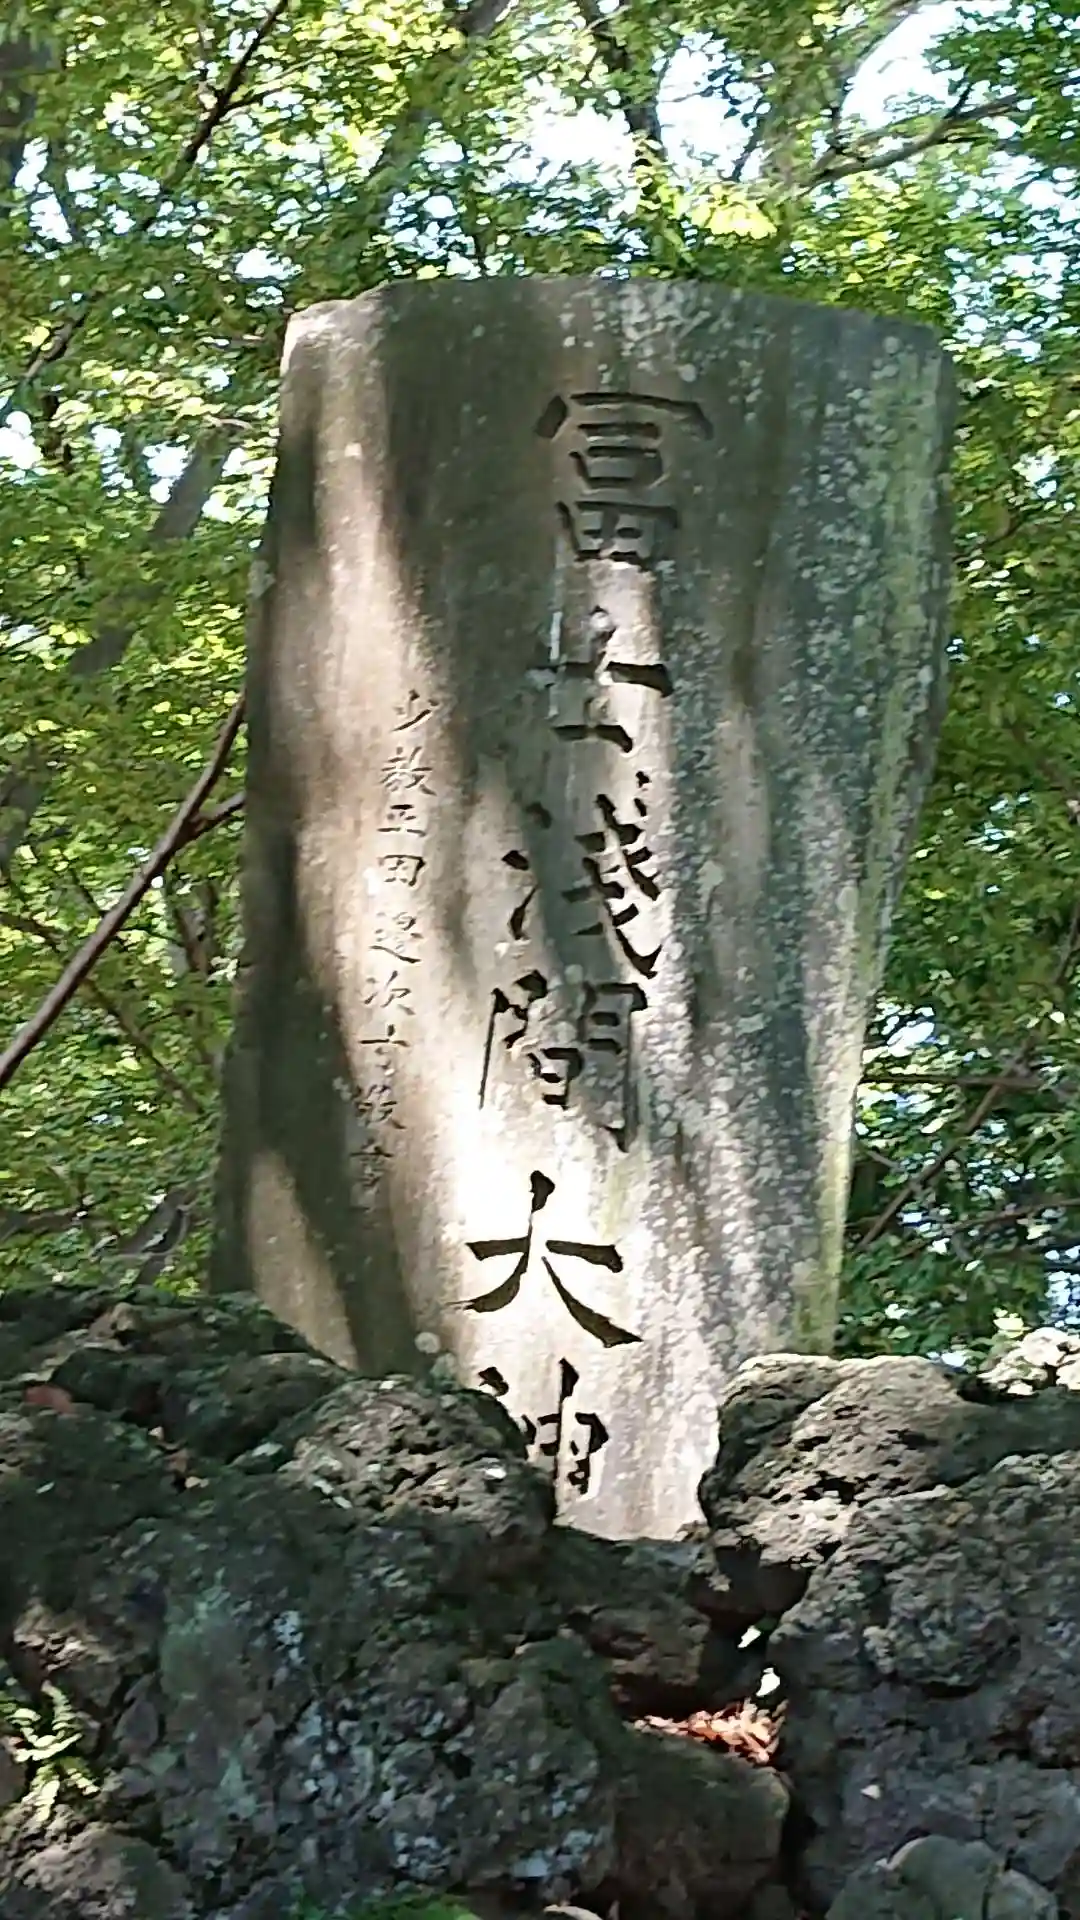 冨士淺間大神
少教正田邉次郎敬書